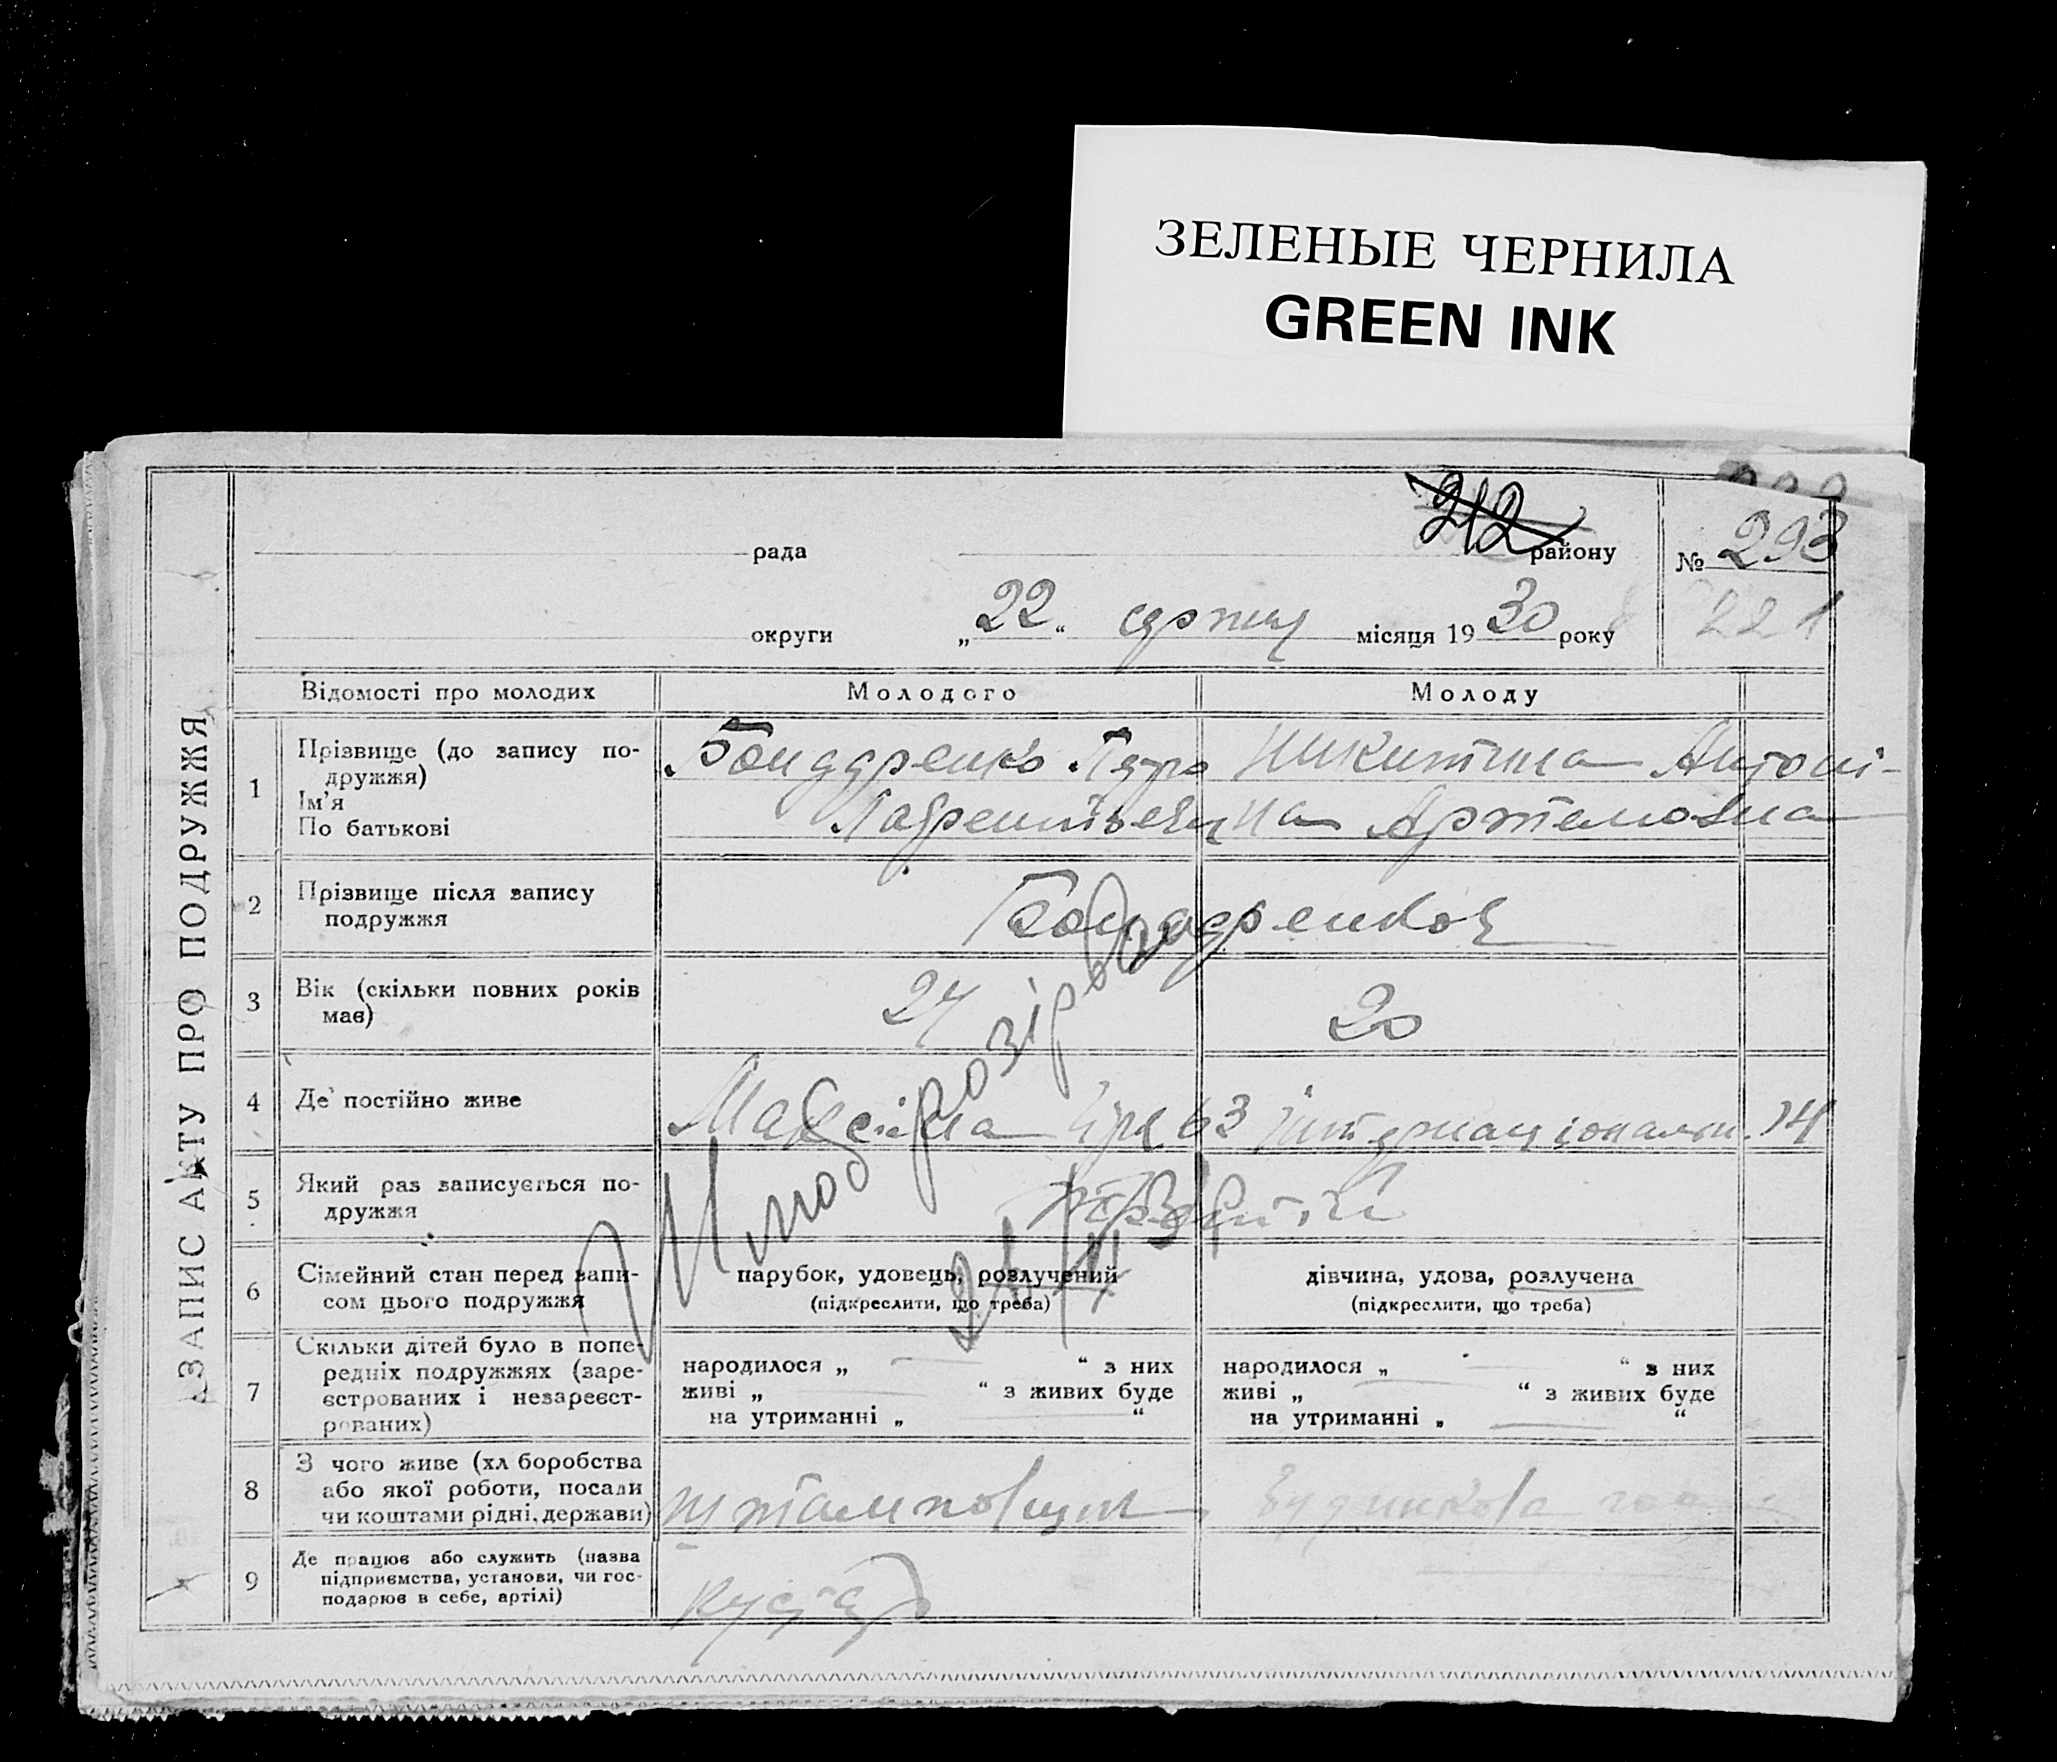 ЗЕЛЕНЫЕ ЧЕРНИЛА
GREEN INK
ЗАПИС АКТУ ПРО ПОДРУЖЖЯ
212
рада району № 293
округи „22“ серпня місяця 1930 року 221
Відомості про молодих Молодого Молоду
1 Прізвище (до запису по-
дружжя)
Ім'я
По батькові
Бондаренко Петро
Лаврентьевич
Никитина Антоні-
на Артемовна
2 Прізвище після запису
подружжя
Бондаренко
3 Вік (скільки повних років
має)
24 20
4 Де постійно живе
63 Інтернаціональн. 14
5 Який раз записується по-
дружжя
6 Сімейний стан перед запи-
сом цього подружжя
парубок, удовець, розлучений
(підкреслити, що треба)
дівчина, удова, розлучена
(підкреслити, що треба)
7 Скільки дітей було в попе-
редніх подружжях (заре-
єстрованих і незареєст-
рованих)
народилося „ “ з них
живі „ “ з живих буде
на утриманні „ “
народилося „ “ з них
живі „ “ з живих буде
на утриманні „ “
8 З чого живе (хліборобства
або якої роботи, посали
чи коштами рідні, держави)
штамповщик
9 Де працює або служить (назва
підприємства, установи, чи гос-
подарює в себе, артілі)
кустар
Шлюб розірвано